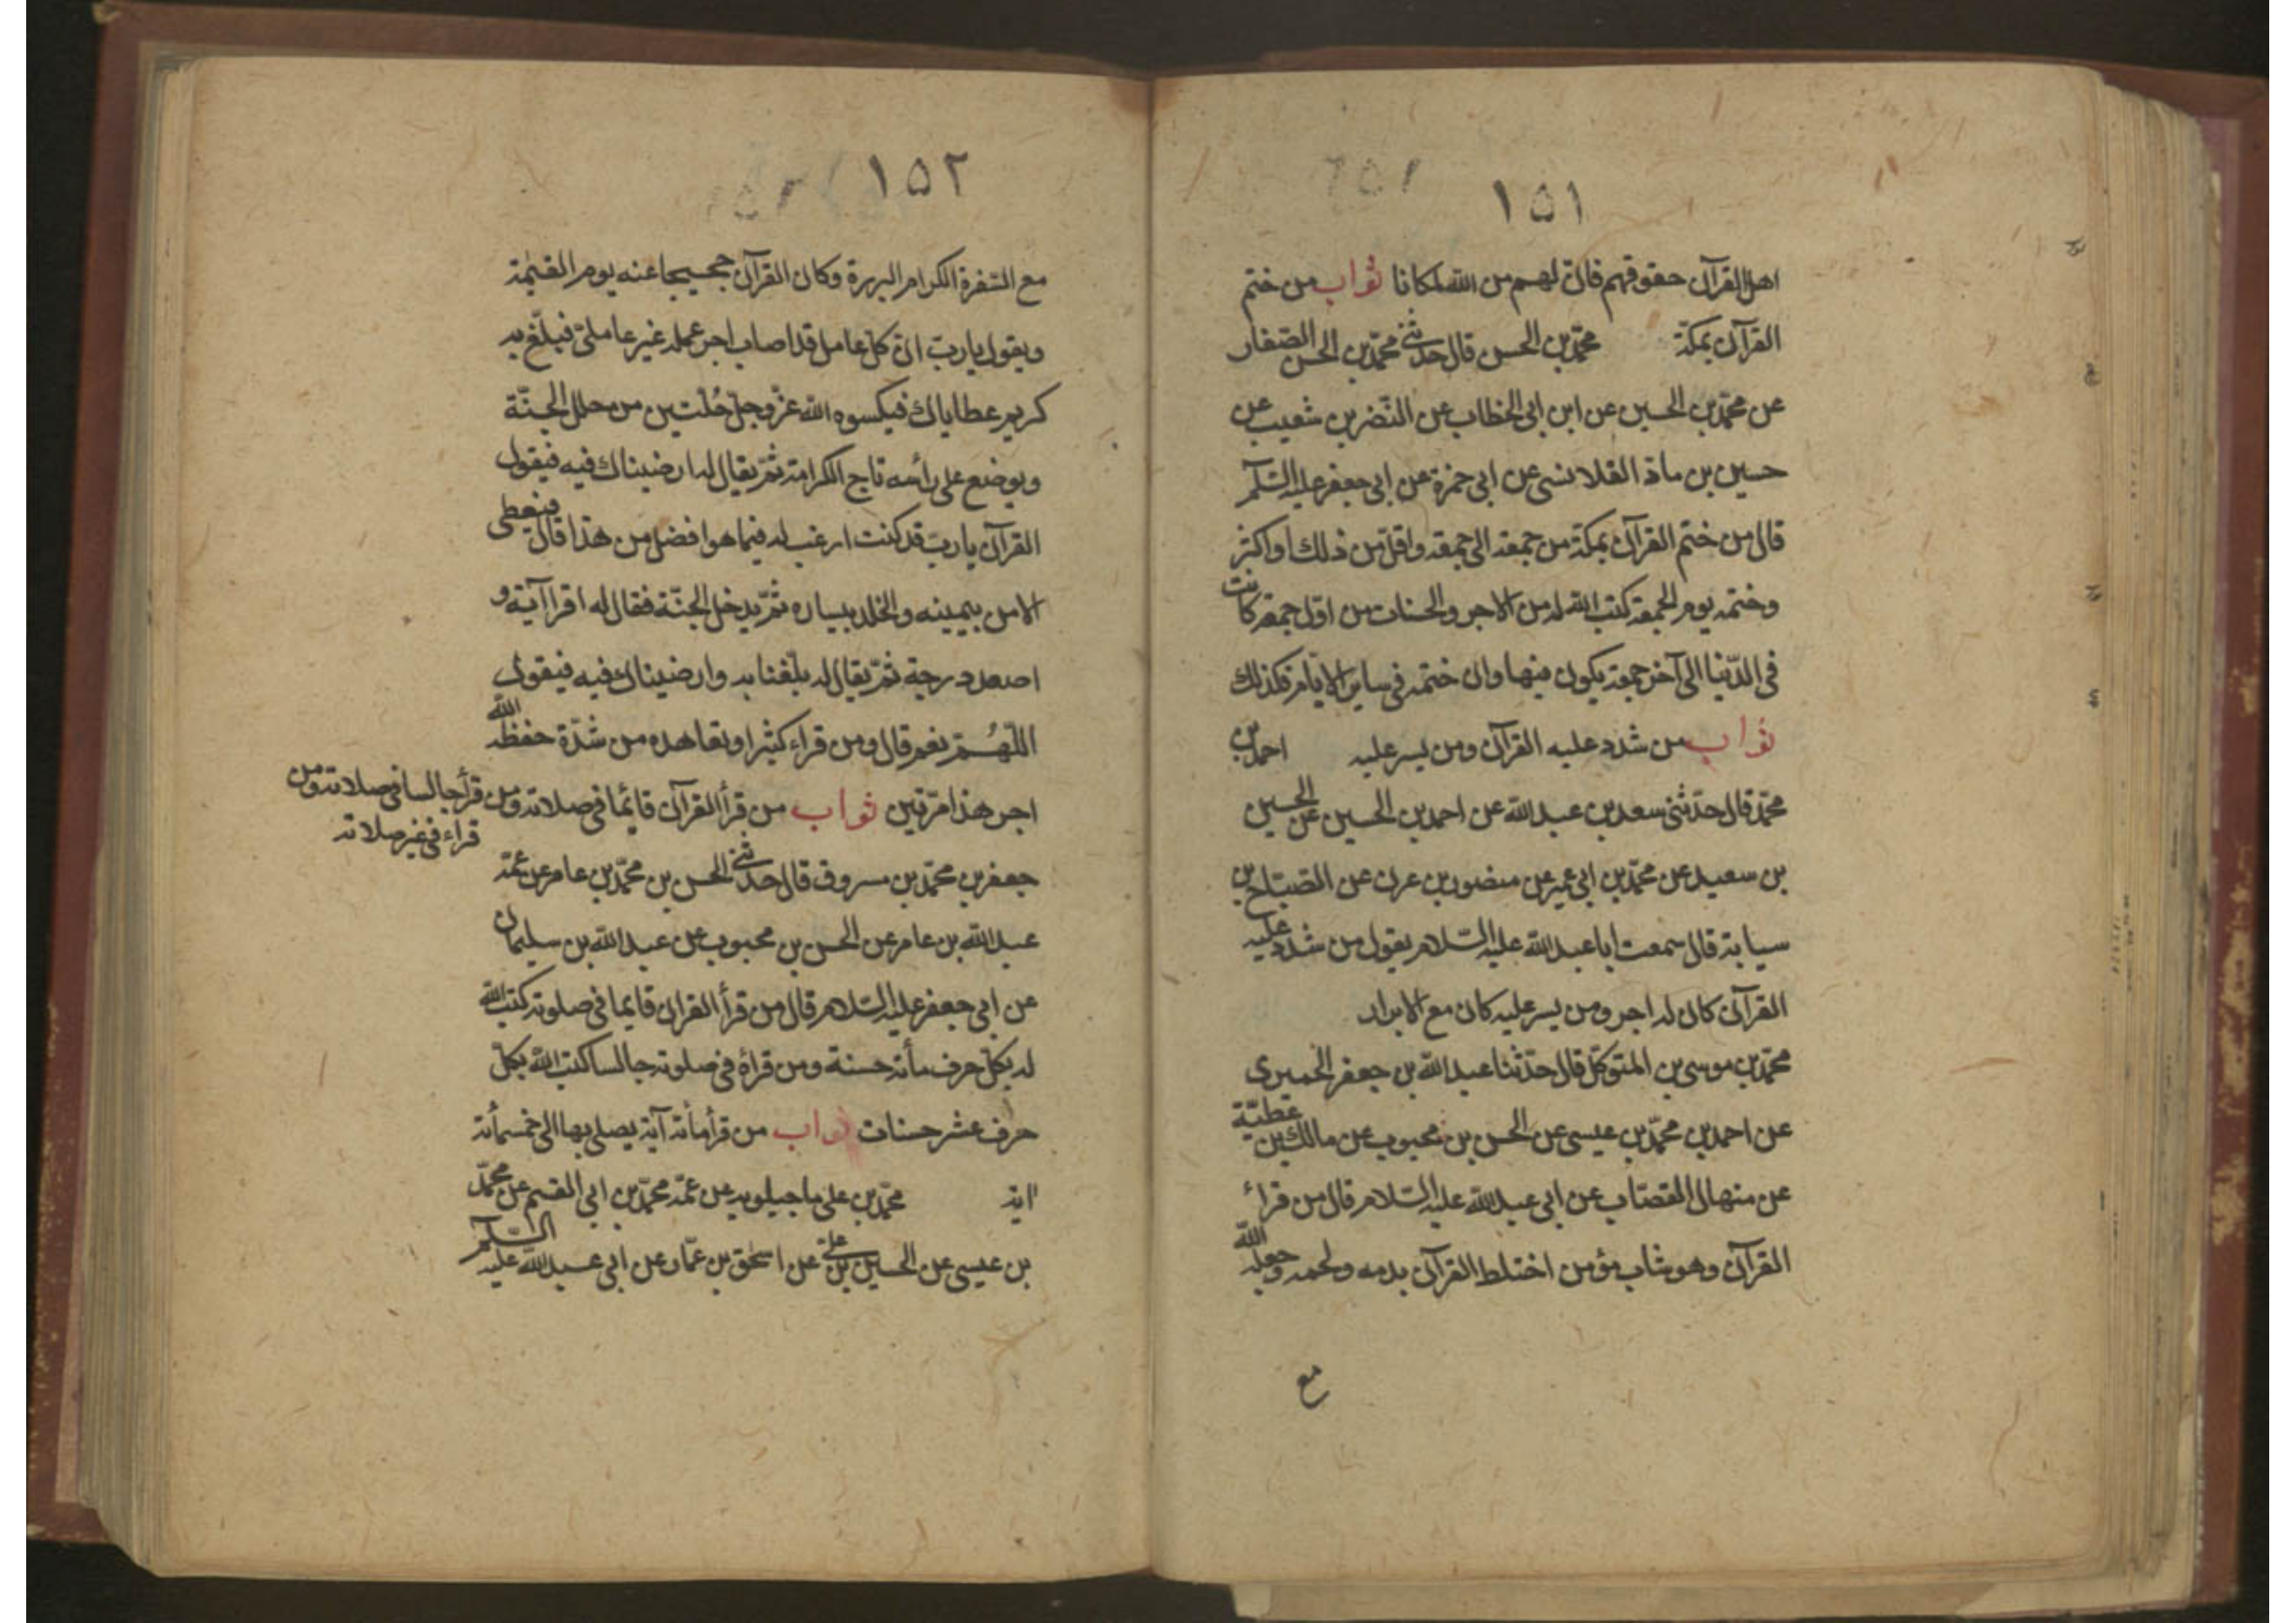 ١٥١
اهل القرآن حقوقهم فان لهم من الله لمكانا ثواب من ختم
القرآن بمكة محمد بن الحسن قال حدثنى محمد بن الحسن الصفار
عن محمد بن الحسين عن ابن ابى الخطاب عن النضر بن شعيب عن
حسين بن ماذ القلانسى عن ابى حمزة عن ابى جعفر عليه السلام
قال من ختم القرآن بمكة من جمعة الى جمعة واقل من ذلك او اكثر
وختمه يوم الجمعة كتب الله له من الاجر والحسنات من اول جمعة كانت
فى الدنيا الى آخر جمعة يكون فيها وان ختمه فى ساير الايام فكذلك
ثواب من شدد عليه القرآن ومن يسر عليه احمد بن
محمد قال حدثنى سعد بن عبد الله عن احمد بن الحسين عن الحسين
بن سعيد عن محمد بن ابى عمير عن منصور بن عن الصباح بن
سيابة قال سمعت ابا عبد الله عليه السلام يقول من شدد عليه
القرآن كان له اجر ومن يسر عليه كان مع الابرار
محمد بن موسى بن المتوكل قال حدثنا عبد الله بن جعفر الحميرى
عن احمد بن محمد بن عيسى عن الحسن بن محبوب عن مالك بن عطية
عن منهال القصاب عن ابى عبد الله عليه السلام قال من قراء
القرآن وهو شاب مؤمن اختلط القرآن بدمه ولحمه وجعله الله
مع
١٥٢
مع السفرة الكرام البررة وكان القرآن حجيجا عنه يوم القيمة
ويقول يا رب ان كل عامل قد اصاب اجر عمله غير عاملى فبلغ به
كريم عطاياك فيكسوه الله عز وجل حلتين من حلل الجنة
ويوضع على رأسه تاج الكرامة ثم يقال له ارضيناك فيه فيقول
القرآن يا رب قد كنت ارغب له فيما هو افضل من هذا قال فيعطى
الامن بيمينه والخلد بيساره ثم يدخل الجنة فقال له اقرا آية و
اصعد درجة ثم يقال له بلغنا به وارضيناك فيه فيقول
اللهم نعم قال ومن قراء كثيرا وتعاهده من شدة حفظه الله
اجر هذا مرتين ثواب من قرأ القرآن قائما فى صلاته ومن قرأ جالسا فى صلاته ومن
قراء فى غير صلاته
جعفر بن محمد بن مسروق قال حدثنى الحسن بن محمد بن عامر عن عمه
عبد الله بن عامر عن الحسن بن محبوب عن عبد الله بن سليمان
عن ابى جعفر عليه السلام قال من قرأ القران قايما فى صلوته كتب الله
له بكل حرف مأته حسنة ومن قراه فى صلوته جالسا كتب الله بكل
حرف عشر حسنات ثواب من قرأ مأته آية يصلى بها الى خمسمأته
اية محمد بن على ماجيلويه عن عمه محمد بن ابى القسم عن محمد
بن عيسى عن الحسين بن على عن اسحق بن عمار عن ابى عبد الله عليه السلام